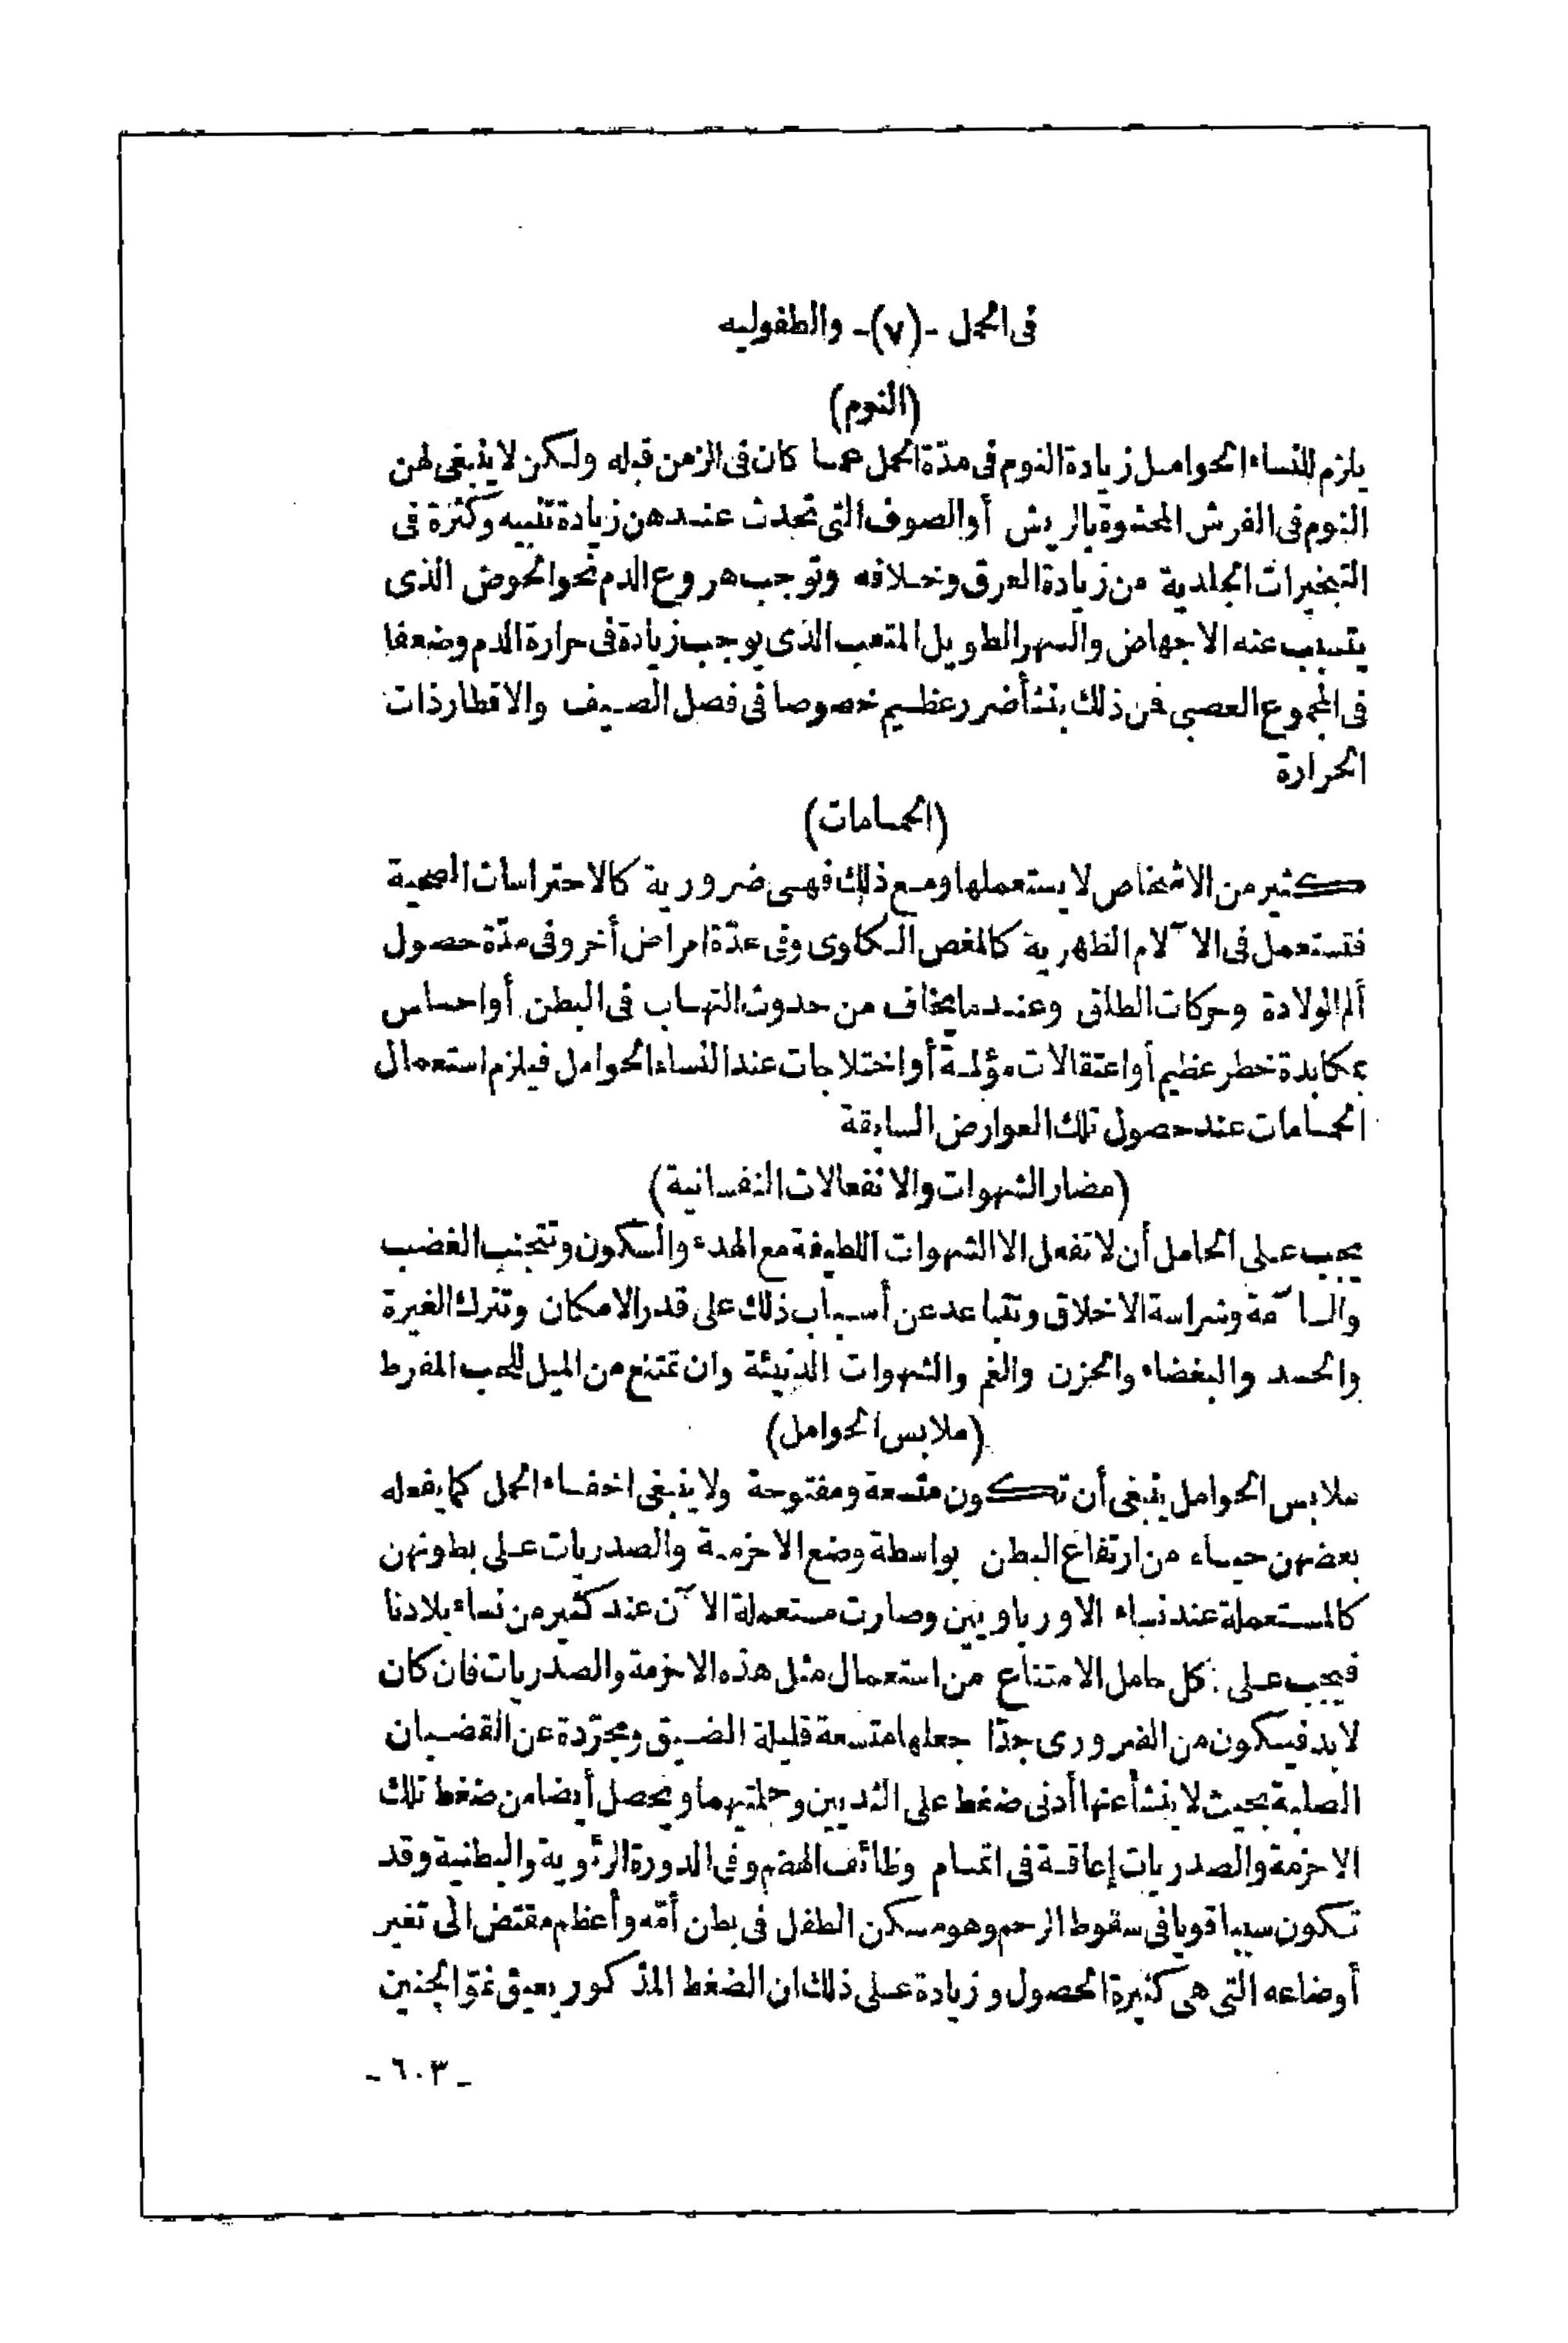 فى الحمل -(٧)- والطفوليه
(النوم)
يلزم للنساء الحوامل زيادة النوم فى مدّة الحمل عما كان فى الزمن قبله ولكن لا ينبغى لهن
النوم فى الفرش المحشوة بالريش أو الصوف التى تحدث عندهن زيادة تنبيه وكثرة فى
التبخيرات الجلدية من زيادة العرق وخلافه وتوجب هروع الدم نحو الحوض الذى
يتسبب عنه الاجهاض والسهر الطويل المتعب الذى يوجب زيادة فى حرارة الدم وضعفا
فى المجموع العصبى فمن ذلك ينشأ ضرر عظيم خصوصا فى فصل الصيف والاقطار ذات
الحرارة
(الحمامات)
كثير من الاشخاص لا يستعملها ومع ذلك فهى ضرورية كالاحتراسات الصحية
فتستعمل فى الآلام الظهرية كالمغص الكلوى وفى عدّة امراض أخر وفى مدّة حصول
ألم الولادة وحركات الطلق وعندما يخاف من حدوث التهاب فى البطن أو احساس
بمكابدة خطر عظيم أو اعتقالات مؤلمة أو اختلاجات عند النساء الحوامل فيلزم استعمال
الحمامات عند حصول تلك العوارض السابقة
(مضار الشهوات والانفعالات النفسانية)
يجب على الحامل أن لا تفعل الا الشهوات اللطيفة مع الهدء والسكون وتتجنب الغضب
والسآمة وشراسة الاخلاق وتتباعد عن أسباب ذلك على قدر الامكان وتترك الغيرة
والحسد والبغضاء والحزن والغم والشهوات الدنيئة وان تمتنع من الميل للحب المفرط
(ملابس الحوامل)
ملابس الحوامل ينبغى أن تكون متسعة ومفتوحة ولا ينبغى اخفاء الحمل كما يفعله
بعضهن حياء من ارتفاع البطن بواسطة وضع الاحزمة والصدريات على بطونهن
كالمستعملة عند نساء الاورباويين وصارت مستعملة الآن عند كثير من نساء بلادنا
فيجب على كل حامل الامتناع من استعمال مثل هذه الاحزمة والصدريات فان كان
لابد فيكون من الضرورى جدّا جعلها متسعة قليلة الضيق ومجرّدة عن القضبان
الصلبة بحيث لا ينشأ عنها أدنى ضغط على الثديين وحلمتيهما ويحصل أيضا من ضغط تلك
الاحزمة والصدريات إعاقة فى اتمام وظائف الهضم وفى الدورة الرئوية والبطنية وقد
تكون سببا قويا فى سقوط الرحم وهو مسكن الطفل فى بطن أمّه وأعظم مقتض الى تغير
أوضاعه التى هى كثيرة الحصول وزيادة على ذلك ان الضغط المذكور يعيق نموّ الجنين
- ٦٠٣ -